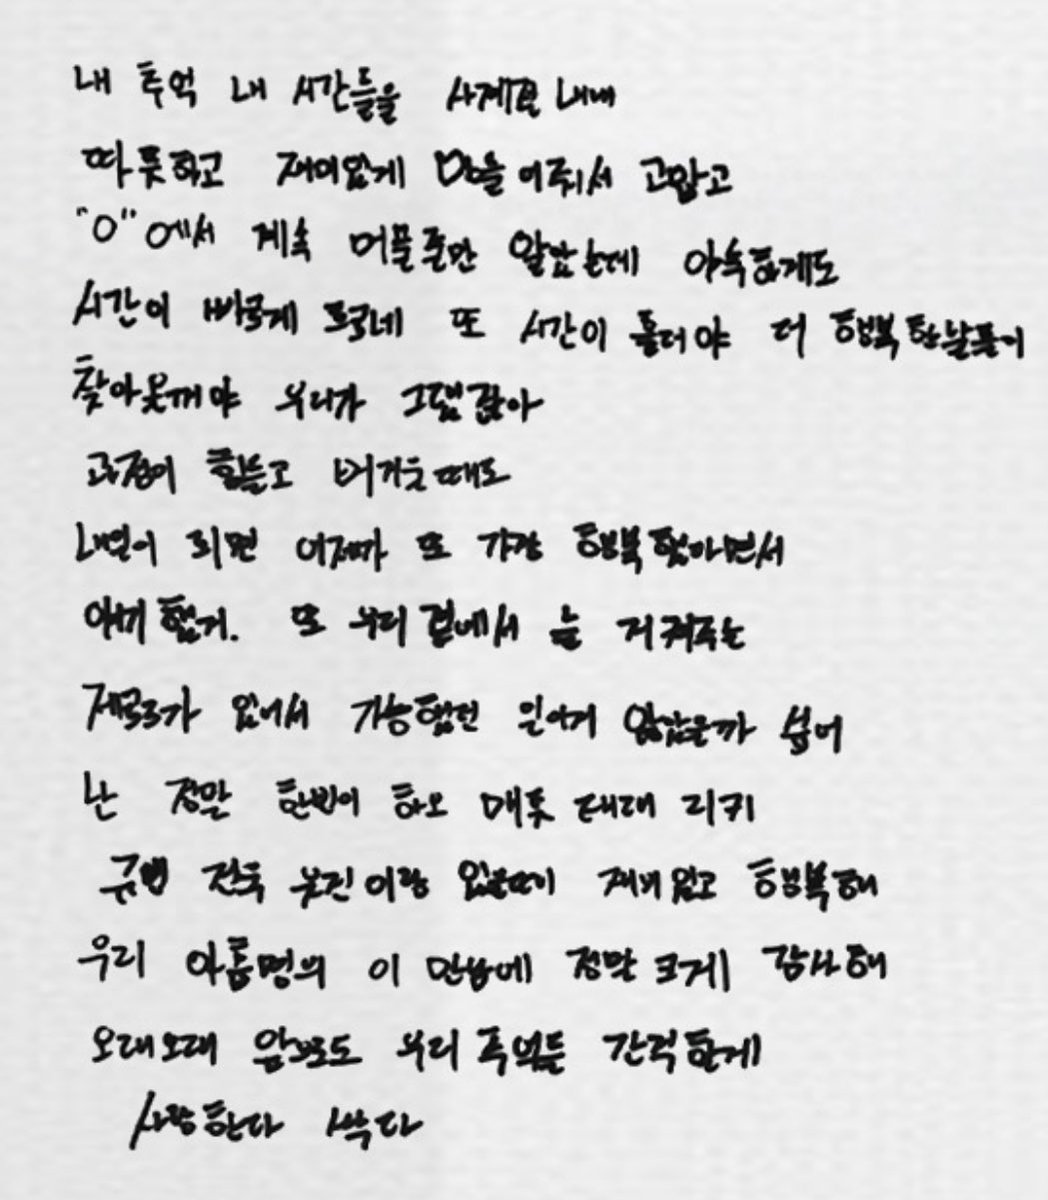 내 추억 내 시간들을 사계절 내내
따뜻하고 재미있게 만들어줘서 고맙고
"0"에서 계속 머물줄만 알았는데 야속하게도
시간이 빠르게 흐르네 또 시간이 흘러야 더 행복한날들이
찾아올꺼야 우리가 그랬잖아
과정이 힘들고 버거울때도
내일이 되면 어제가 또 가장 행복했다면서
얘기했지. 또 우리 곁에서 늘 지켜주는
제로즈가 있어서 가능했던 일이지 않았을까 싶어
난 정말 한빈이 하오 매튜 태래 리키
규빈 건욱 유진이랑 있을때가 재미있고 행복해
우리 아홉명의 이 만남에 정말 크게 감사해
오래오래 앞으로도 우리 추억들 간직할게
사랑한다 싸다